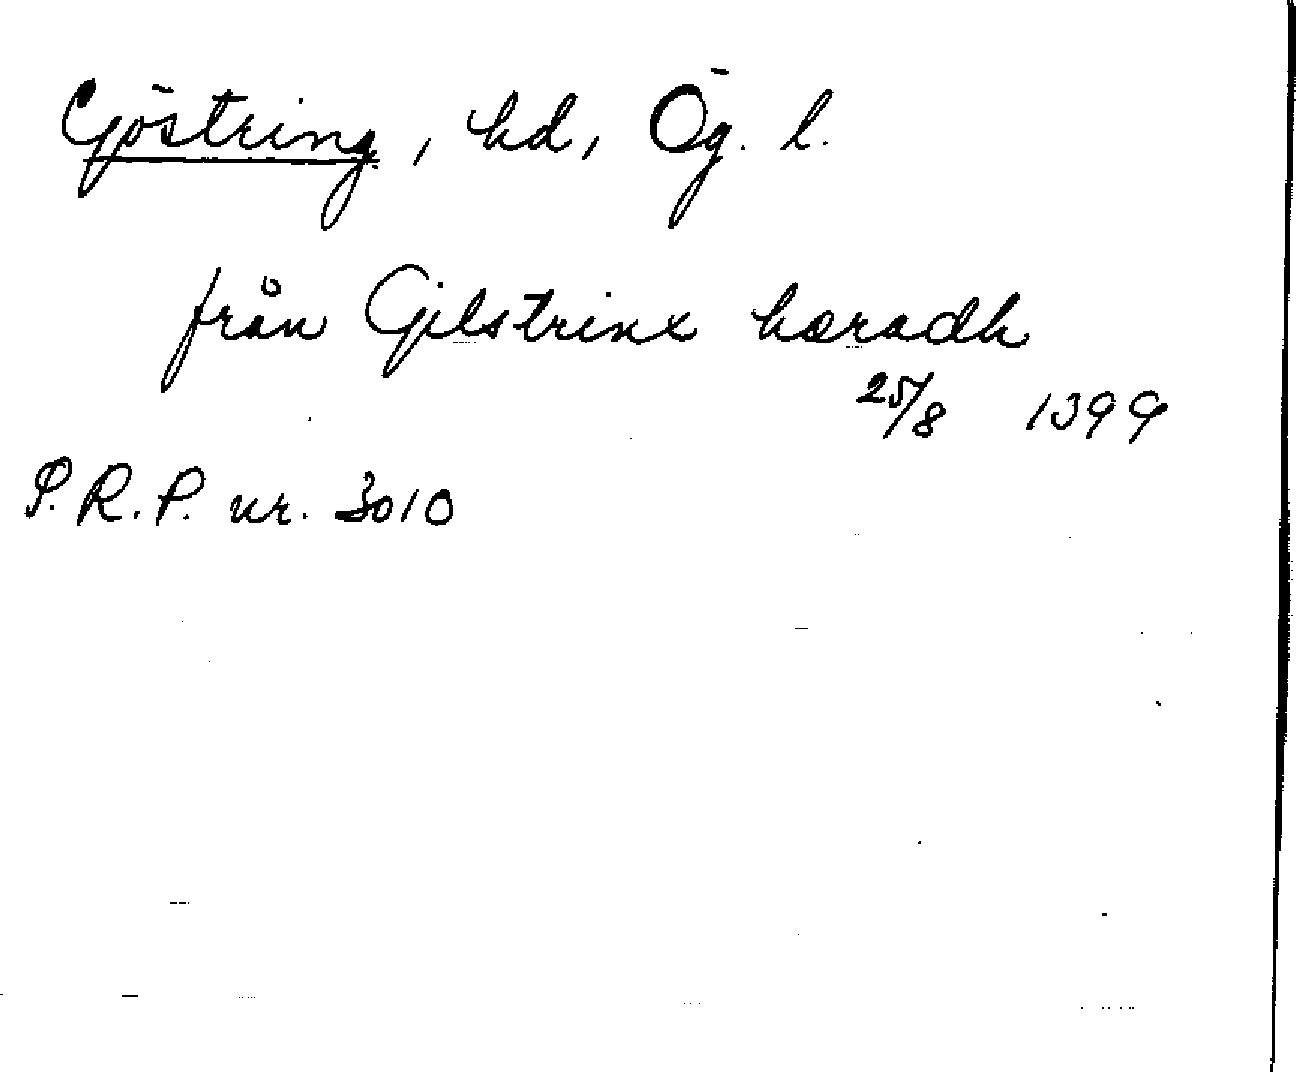 Göstring, hd, Ög. l.
från Gilstrinx hæradh
25/8 1399
S.R.P. nr. 3010